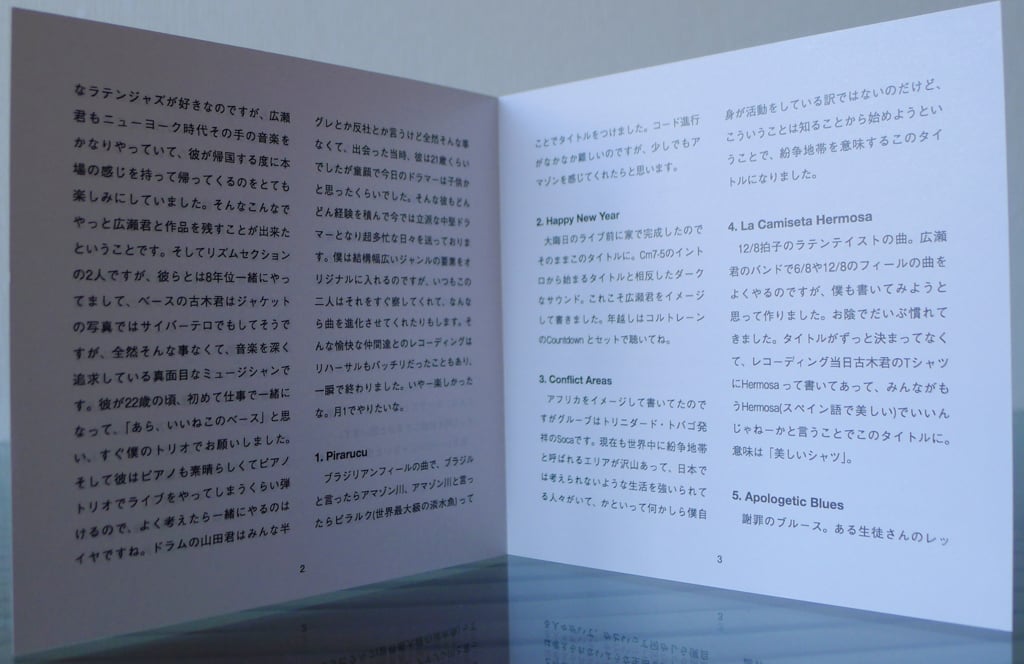 なラテンジャズが好きなのですが、広瀬
君もニューヨーク時代その手の音楽を
かなりやっていて、彼が帰国する度に本
場の感じを持って帰ってくるのをとても
楽しみにしていました。そんなこんなで
やっと広瀬君と作品を残すことが出来た
ということです。そしてリズムセクション
の2人ですが、彼らとは8年位一緒にやっ
てまして、ベースの古木君はジャケット
の写真ではサイバーテロでもしてそうで
すが、全然そんな事なくて、音楽を深く
追求している真面目なミュージシャンで
す。彼が22歳の頃、初めて仕事で一緒に
なって、「あら、いいねこのベース」と思
い、すぐ僕のトリオでお願いしました。
そして彼はピアノも素晴らしくてピアノ
トリオでライブをやってしまうくらい弾
けるので、よく考えたら一緒にやるのは
イヤですね。ドラムの山田君はみんな半
グレとか反社とか言うけど全然そんな事
なくて、出会った当時、彼は21歳くらい
でしたが童顔で今日のドラマーは子供か
と思ったくらいでした。そんな彼もどん
どん経験を積んで今では立派な中堅ドラ
マーとなり超多忙な日々を送っておりま
す。僕は結構幅広いジャンルの要素をオ
リジナルに入れるのですが、いつもこの
二人はそれをすぐ察してくれて、なんな
ら曲を進化させてくれたりもします。そ
んな愉快な仲間達とのレコーディングは
リハーサルもバッチリだったこともあり、
一瞬で終わりました。いやー楽しかった
な。月1でやりたいな。
1. Pirarucu
ブラジリアンフィールの曲で、ブラジル
と言ったらアマゾン川、アマゾン川と言っ
たらピラルク(世界最大級の淡水魚)って
2
ことでタイトルをつけました。コード進行
がなかなか難しいのですが、少しでもア
マゾンを感じてくれたらと思います。
2. Happy New Year
大晦日のライブ前に家で完成したので
そのままこのタイトルに。Cm7-5のイント
ロから始まるタイトルと相反したダーク
なサウンド。これこそ広瀬君をイメージ
して書きました。年越しはコルトレーン
のCountdown とセットで聴いてね。
3. Conflict Areas
アフリカをイメージして書いてたので
すがグルーブはトリニダード・トバゴ発
祥のSocaです。現在も世界中に紛争地帯
と呼ばれるエリアが沢山あって、日本で
は考えられないような生活を強いられて
る人々がいて、かといって何かしら僕自
身が活動をしている訳ではないのだけど、
こういうことは知ることから始めようとい
うことで、紛争地帯を意味するこのタイ
トルになりました。
4. La Camiseta Hermosa
12/8拍子のラテンテイストの曲。広瀬
君のバンドで6/8や12/8のフィールの曲を
よくやるのですが、僕も書いてみようと
思って作りました。お陰でだいぶ慣れて
きました。タイトルがずっと決まってなく
て、レコーディング当日古木君のTシャツ
にHermosa って書いてあって、みんながも
うHermosa(スペイン語で美しい)でいいん
じゃねーかと言うことでこのタイトルに。
意味は「美しいシャツ」。
5. Apologetic Blues
謝罪のブルース。ある生徒さんのレッ
3